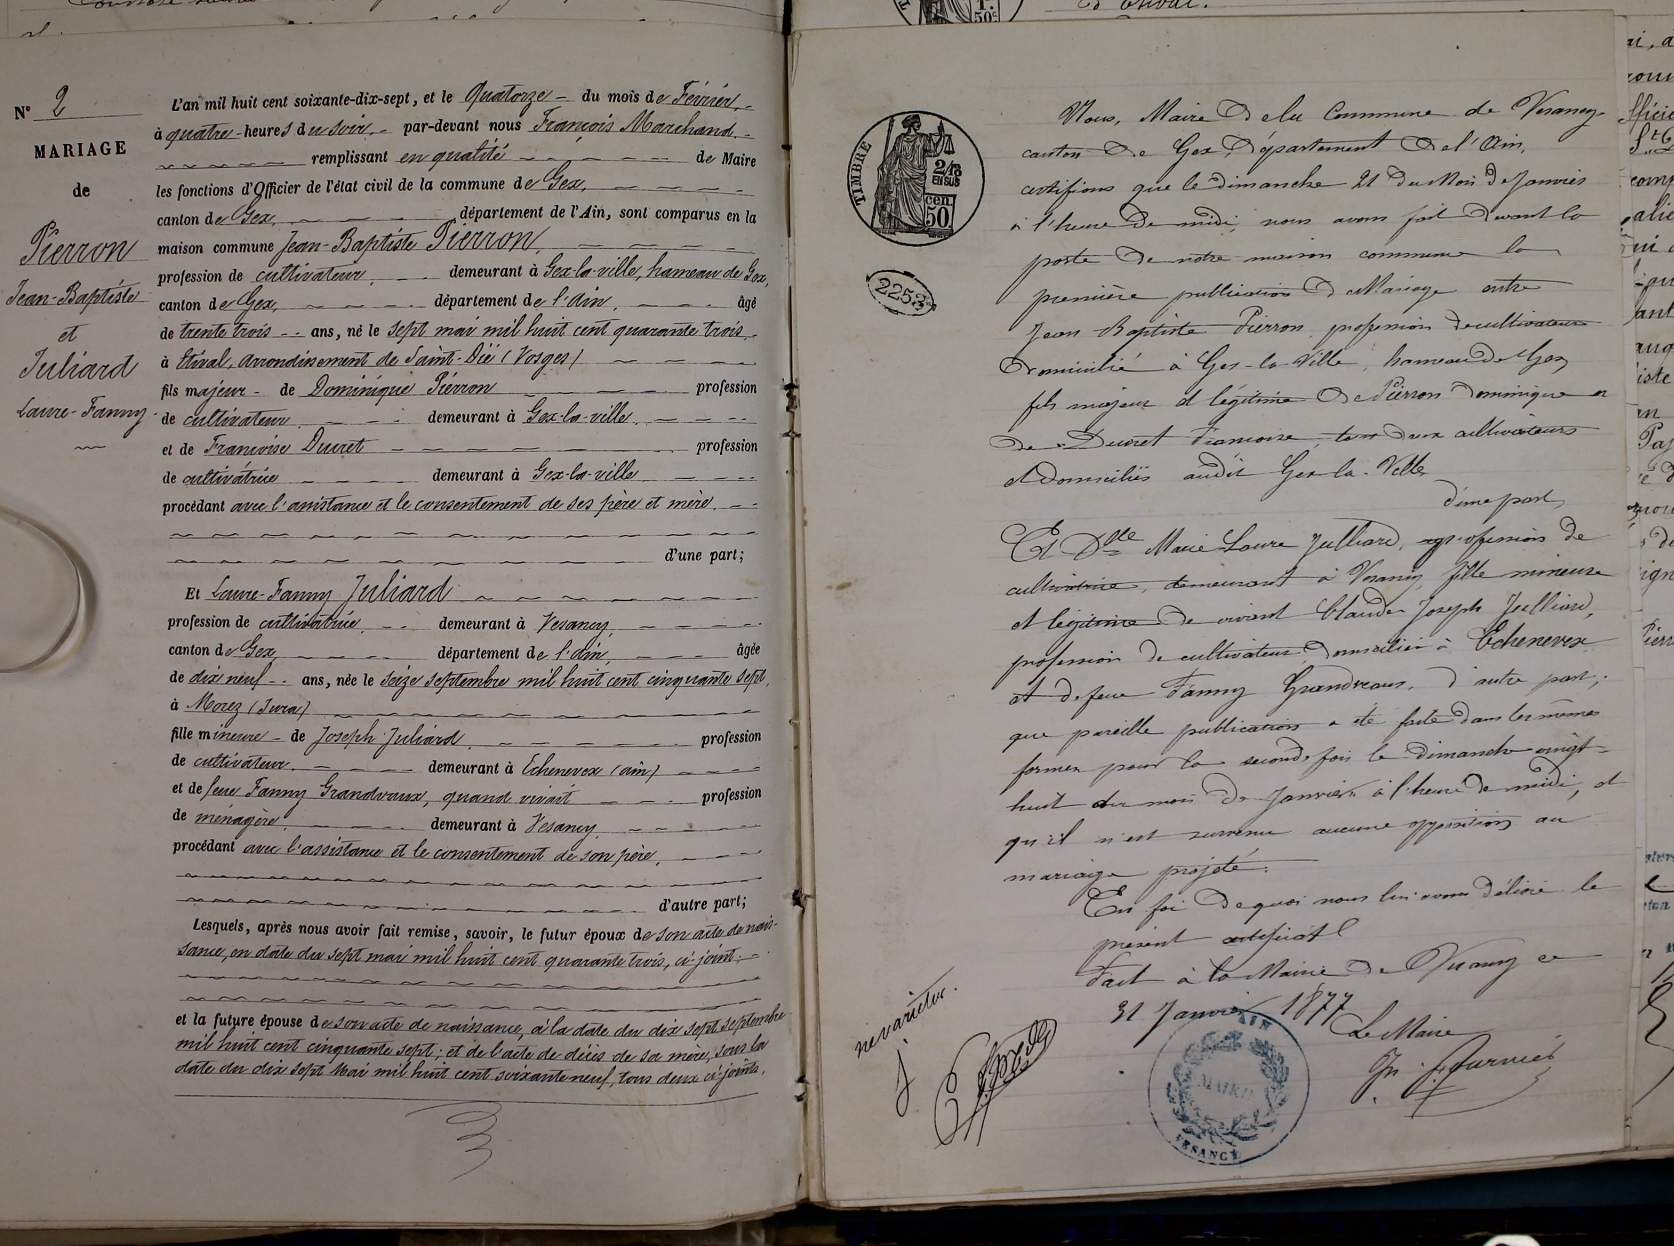 N° 2
MARIAGE
de
Pierron
Jean-Baptiste
et
Juliard
Laure-Fanny
L'an mil huit cent soixante-dix-sept, et le Quatorze - du mois de Février,
à quatre heures du soir, par-devant nous François Marchand
remplissant en qualité de Maire
les fonctions d'Officier de l'état civil de la commune de Gex,
canton de Gex, département de l'Ain, sont comparus en la
maison commune Jean-Baptiste Pierron,
profession de cultivateur, demeurant à Gex-la-ville, hameau de Gex,
canton de Gex, département de l'ain, âgé
de trente trois -- ans, né le sept mai mil huit cent quarante trois,
à Etival, arrondissement de Saint-Dié (Vosges)
fils majeur - de Dominique Pierron profession
de cultivateur, demeurant à Gex-la-ville,
et de Françoise Ducret profession
de cultivatrice demeurant à Gex-la-ville
procédant avec l'assistance et le consentement de ses père et mère,
d'une part;
Et Laure-Fanny Juliard
profession de cultivatrice, demeurant à Vesancy,
canton de Gex département de l'ain, âgée
de dix neuf -- ans, née le seize septembre mil huit cent cinquante sept,
à Morez (Jura)
fille mineure - de Joseph Juliard, profession
de cultivateur, demeurant à Echenevex (ain)
et de feue Fanny Grandvaux, quand vivait profession
de ménagère, demeurant à Vesancy
procédant avec l'assistance et le consentement de son père,
d'autre part;
Lesquels, après nous avoir fait remise, savoir, le futur époux de son acte de nais-
sance, en date du sept mai mil huit cent quarante trois, ci-joint;
et la future épouse de son acte de naissance, à la date du dix sept septembre
mil huit cent cinquante sept; et de l'acte de décès de sa mère, sous la
date du dix sept Mai mil huit cent soixante neuf, tous deux ci-joints.
TIMBRE
2/10
EN SUS
cen.
50
2253
Nous, Maire de la Commune de Vesancy
canton de Gex, Département de l'Ain,
certifions que le dimanche 21 du mois de Janvier
à l'heure de midi, nous avons fait devant la
porte de notre maison commune la
première publication de Mariage entre
Jean Baptiste Pierron profession de cultivateur
domicilié à Gex-la-Ville, hameau de Gex
fils majeur et légitime de Pierron Dominique et
de Ducret Françoise, tous deux cultivateurs
et domiciliés audit Gex-la-Ville
d'une part,
Et Dlle Marie Laure Julliard, profession de
cultivatrice, demeurant à Vesancy, fille mineure
et légitime de vivant Claude Joseph Julliard,
profession de cultivateur domicilié à Echenevex
et de feue Fanny Grandvaux, d'autre part;
que pareille publication a été faite dans les mêmes
formes pour la seconde fois le dimanche vingt-
huit du mois de Janvier à l'heure de midi, et
qu'il n'est survenu aucune opposition au
mariage projeté.
En foi de quoi nous lui avons délivré le
présent certificat
Fait à la Mairie de Vesancy ce
31 Janvier 1877
Le Maire
ne varietur.
AIN
MAIRIE
VESANCY